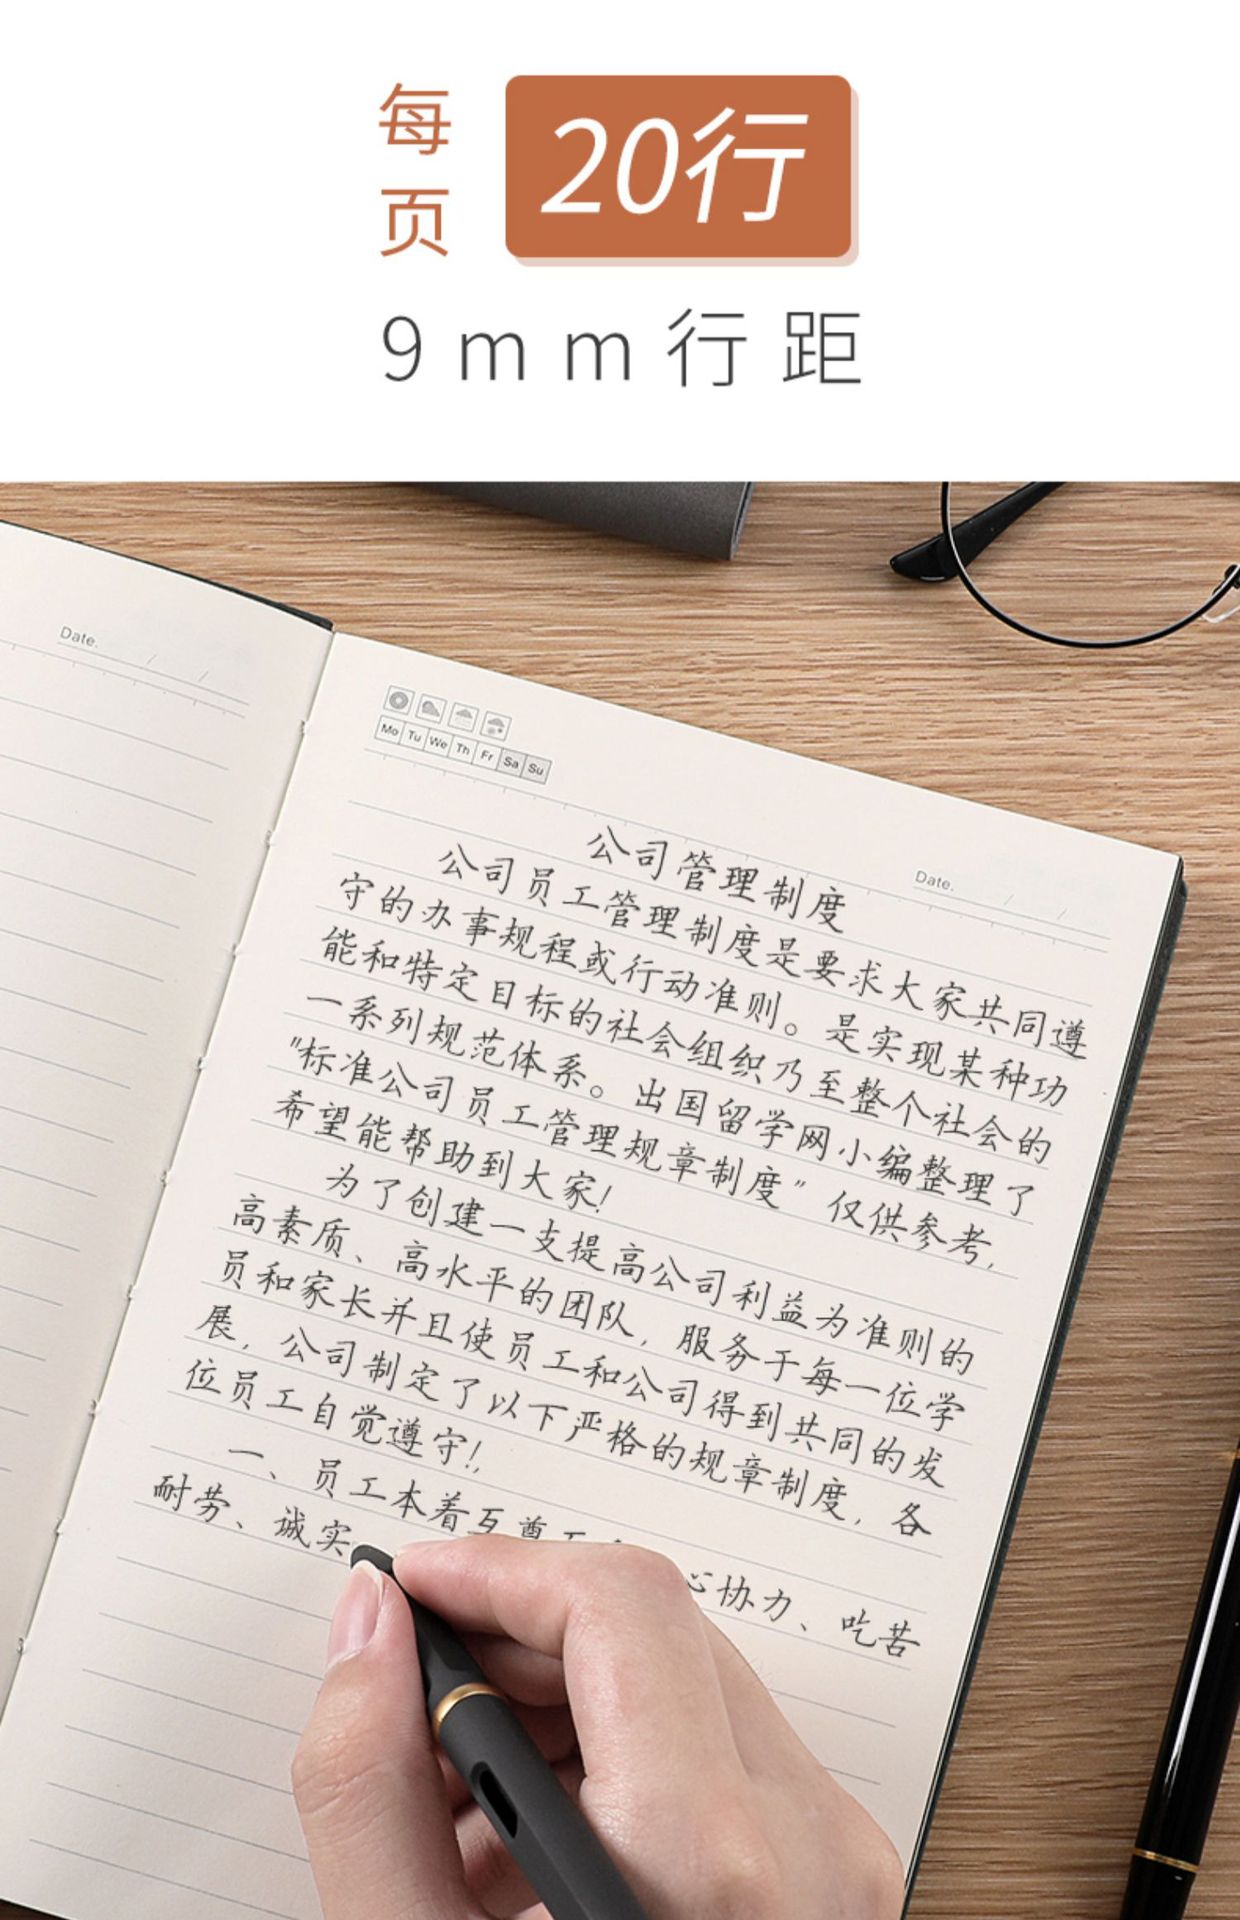 每页
20行
9mm行距
Date.
Mo Tu We Th Fr Sa Su
Date.
公司管理制度
公司员工管理制度是要求大家共同遵
守的办事规程或行动准则。是实现某种功
能和特定目标的社会组织乃至整个社会的
一系列规范体系。出国留学网小编整理了
"标准公司员工管理规章制度"仅供参考,
希望能帮助到大家!
为了创建一支提高公司利益为准则的
高素质、高水平的团队,服务于每一位学
员和家长并且使员工和公司得到共同的发
展,公司制定了以下严格的规章制度,各
位员工自觉遵守!,
一、员工本着互尊互 心协力、吃苦
耐劳、诚实